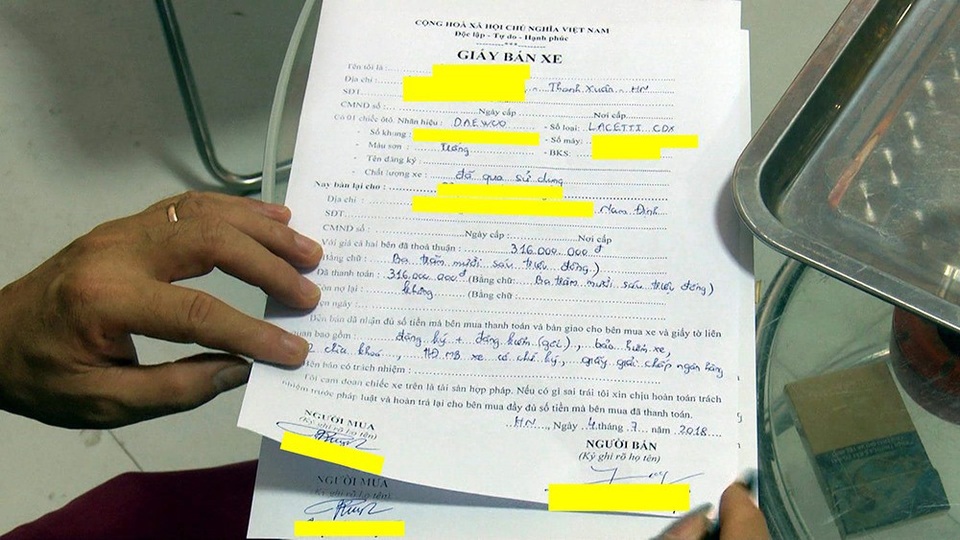 CỘNG HOÀ XÃ HỘI CHỦ NGHĨA VIỆT NAM
Độc lập - Tự do - Hạnh phúc
GIẤY BÁN XE
Tên tôi là :
Địa chỉ : Thanh Xuân - HN
SĐT
CMND số : Ngày cấp: Nơi cấp
Có 01 chiếc ôtô. Nhãn hiệu : DAEWOO - Số loại: LACETTI CDX
- Số khung : - Số máy:
- Màu sơn : Trắng - BKS:
- Tên đăng ký :
- Chất lượng xe : đã qua sử dụng
Nay bán lại cho :
Địa chỉ : Nam Định
SĐT
CMND số : Ngày cấp : Nơi cấp
Với giá cả hai bên đã thoả thuận : 316.000.000đ
(Bằng chữ : Ba trăm mười sáu triệu đồng)
Đã thanh toán : 316.000.000đ (Bằng chữ : Ba trăm mười sáu triệu đồng)
Còn nợ lại : không (Bằng chữ :
ẹn ngày :
Bên bán đã nhận đủ số tiền mà bên mua thanh toán và bàn giao cho bên mua xe và giấy tờ liên
quan bao gồm : đăng ký + đăng kiểm (gốc), bảo hiểm xe,
2 chìa khoá, HĐ MB xe có chữ ký, giấy giải chấp ngân hàng
Bên bán có trách nhiệm :
Tôi cam đoan chiếc xe trên là tài sản hợp pháp. Nếu có gì sai trái tôi xin chịu hoàn toàn trách
nhiệm trước pháp luật và hoàn trả lại cho bên mua đầy đủ số tiền mà bên mua đã thanh toán.
HN, Ngày 4 tháng 7 năm 2018
NGƯỜI MUA NGƯỜI BÁN
(Ký ghi rõ họ tên) (Ký ghi rõ họ tên)
NGƯỜI MUA
(Ký ghi rõ họ tên)